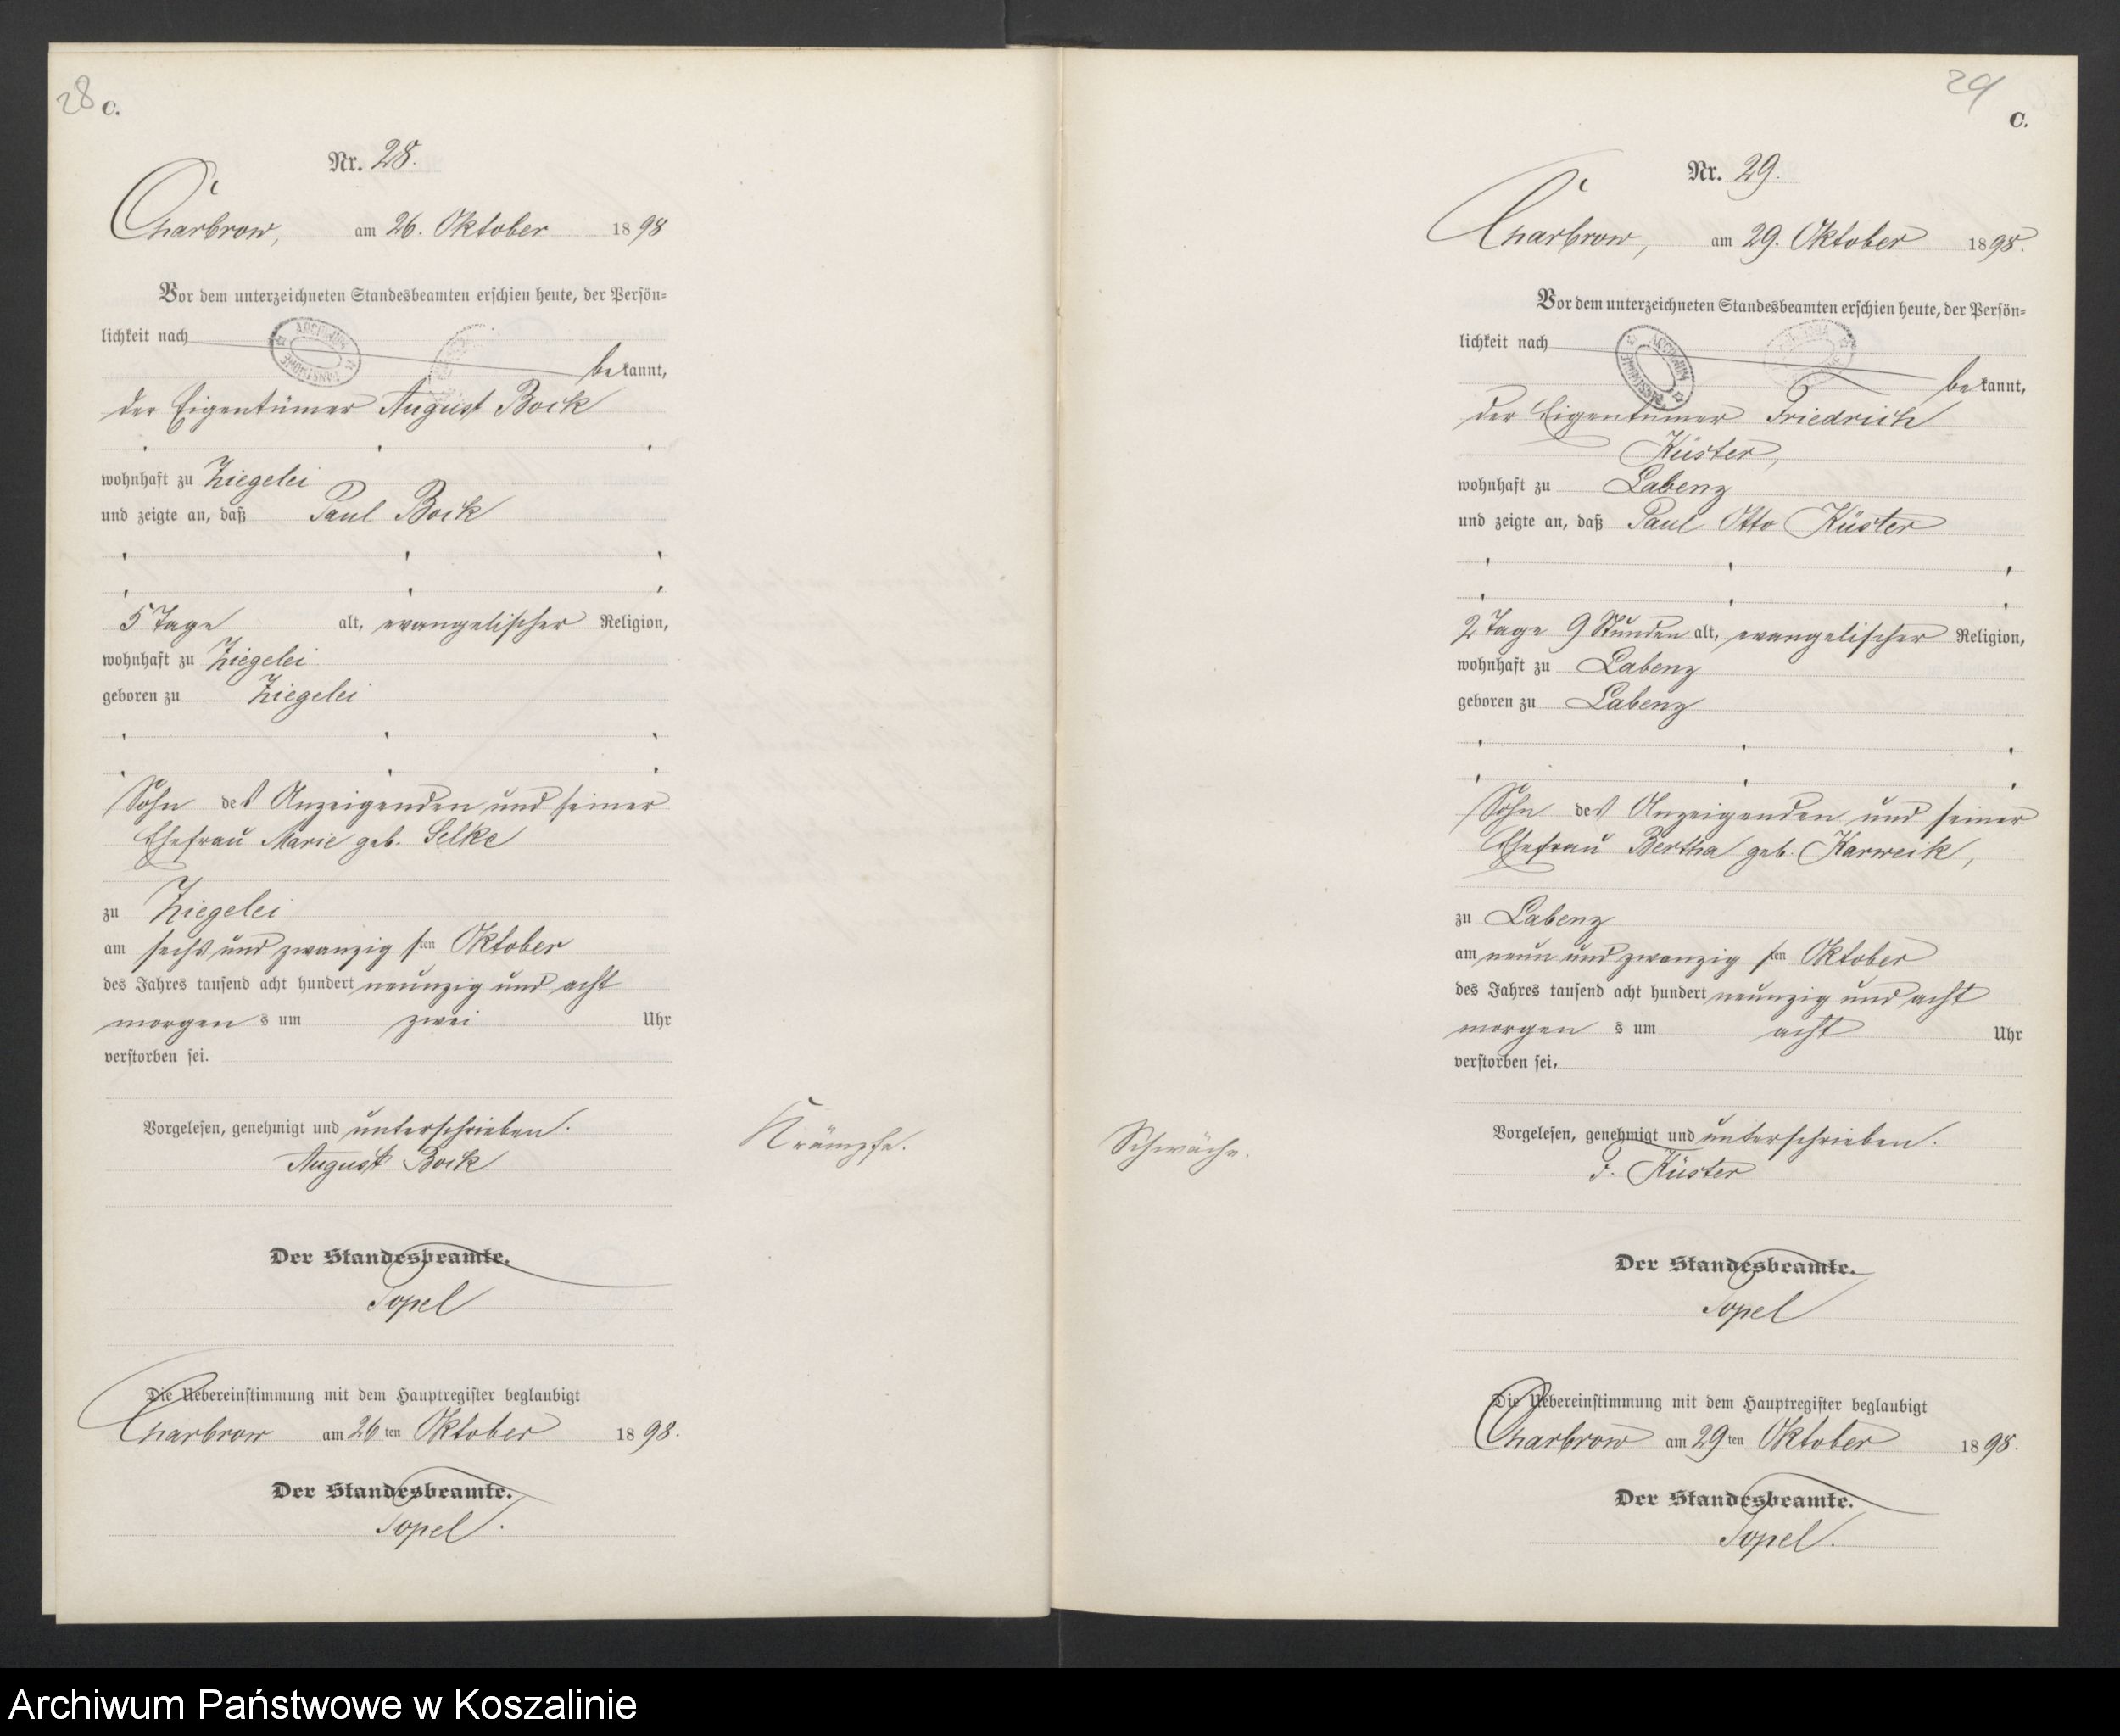 28
C.
Nr. 28.
Charbrow, am 26. Oktober 1898
Vor dem unterzeichneten Standesbeamten erschien heute, der Persön-
lichkeit nach
bekannt,
der Eigentümer August Bock
wohnhaft zu Ziegelei
und zeigte an, daß Paul Bock
5 Tage alt, evangelischer Religion,
wohnhaft zu Ziegelei
geboren zu Ziegelei
Sohn des Anzeigenden und seiner
Ehefrau Marie geb. Selke
zu Ziegelei
am sechs und zwanzigsten Oktober
des Jahres tausend acht hundert neunzig und acht
morgens um zwei Uhr
verstorben sei.
Vorgelesen, genehmigt und unterschrieben.
August Bock
Krämpfe.
Der Standesbeamte.
Topel
Die Uebereinstimmung mit dem Hauptregister beglaubigt
Charbrow am 26ten Oktober 1898.
Der Standesbeamte.
Topel.
29
C.
Nr. 29.
Charbrow, am 29. Oktober 1898.
Vor dem unterzeichneten Standesbeamten erschien heute, der Persön-
lichkeit nach
bekannt,
der Eigentümer Friedrich
Küster,
wohnhaft zu Labenz
und zeigte an, daß Paul Otto Küster
2 Tage 9 Stunden alt, evangelischer Religion,
wohnhaft zu Labenz
geboren zu Labenz
Sohn des Anzeigenden und seiner
Ehefrau Bertha geb. Karweik,
zu Labenz
am neun und zwanzigsten Oktober
des Jahres tausend acht hundert neunzig und acht
morgens um acht Uhr
verstorben sei.
Vorgelesen, genehmigt und unterschrieben.
F. Küster
Schwäche.
Der Standesbeamte.
Topel
Die Uebereinstimmung mit dem Hauptregister beglaubigt
Charbrow am 29ten Oktober 1898.
Der Standesbeamte.
Topel.
Archiwum Państwowe w Koszalinie